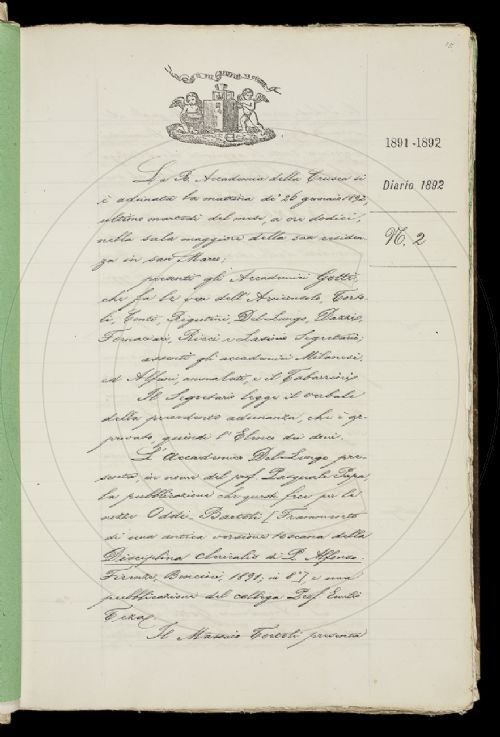 15
1891-1892
Diario 1892
N. 2
La R. Accademia della Crusca si
è adunata la mattina di 26 gennaio 1892,
ultimo martedì del mese, a ore dodici,
nella sala maggiore della sua residen-
za in san Marco;
presenti gli Accademici Gotti,
che fa le veci dell'Arciconsolo, Torto-
li, Conti, Rigutini, Del Lungo, Dazzi,
Fornaciari, Ricci e Lasinio Segretario;
assenti gli accademici Milanesi
ed Alfani, ammalati, e il Tabarrini.
Il Segretario legge il verbale
della precedente adunanza, che è ap-
provato, quindi l'Elenco dei doni.
L'Accademico Del Lungo pre-
senta, in nome del prof. Pasquale Papa,
la pubblicazione che questi fece per le
nozze Oddi-Bartoli [Frammento
di una antica versione toscana della
Disciplina Clericalis di P. Alfonso.
Firenze, 1891; in 8°], e una
pubblicazione del collega Prof. Emilio
Teza.
Il Massaio Tortoli presenta